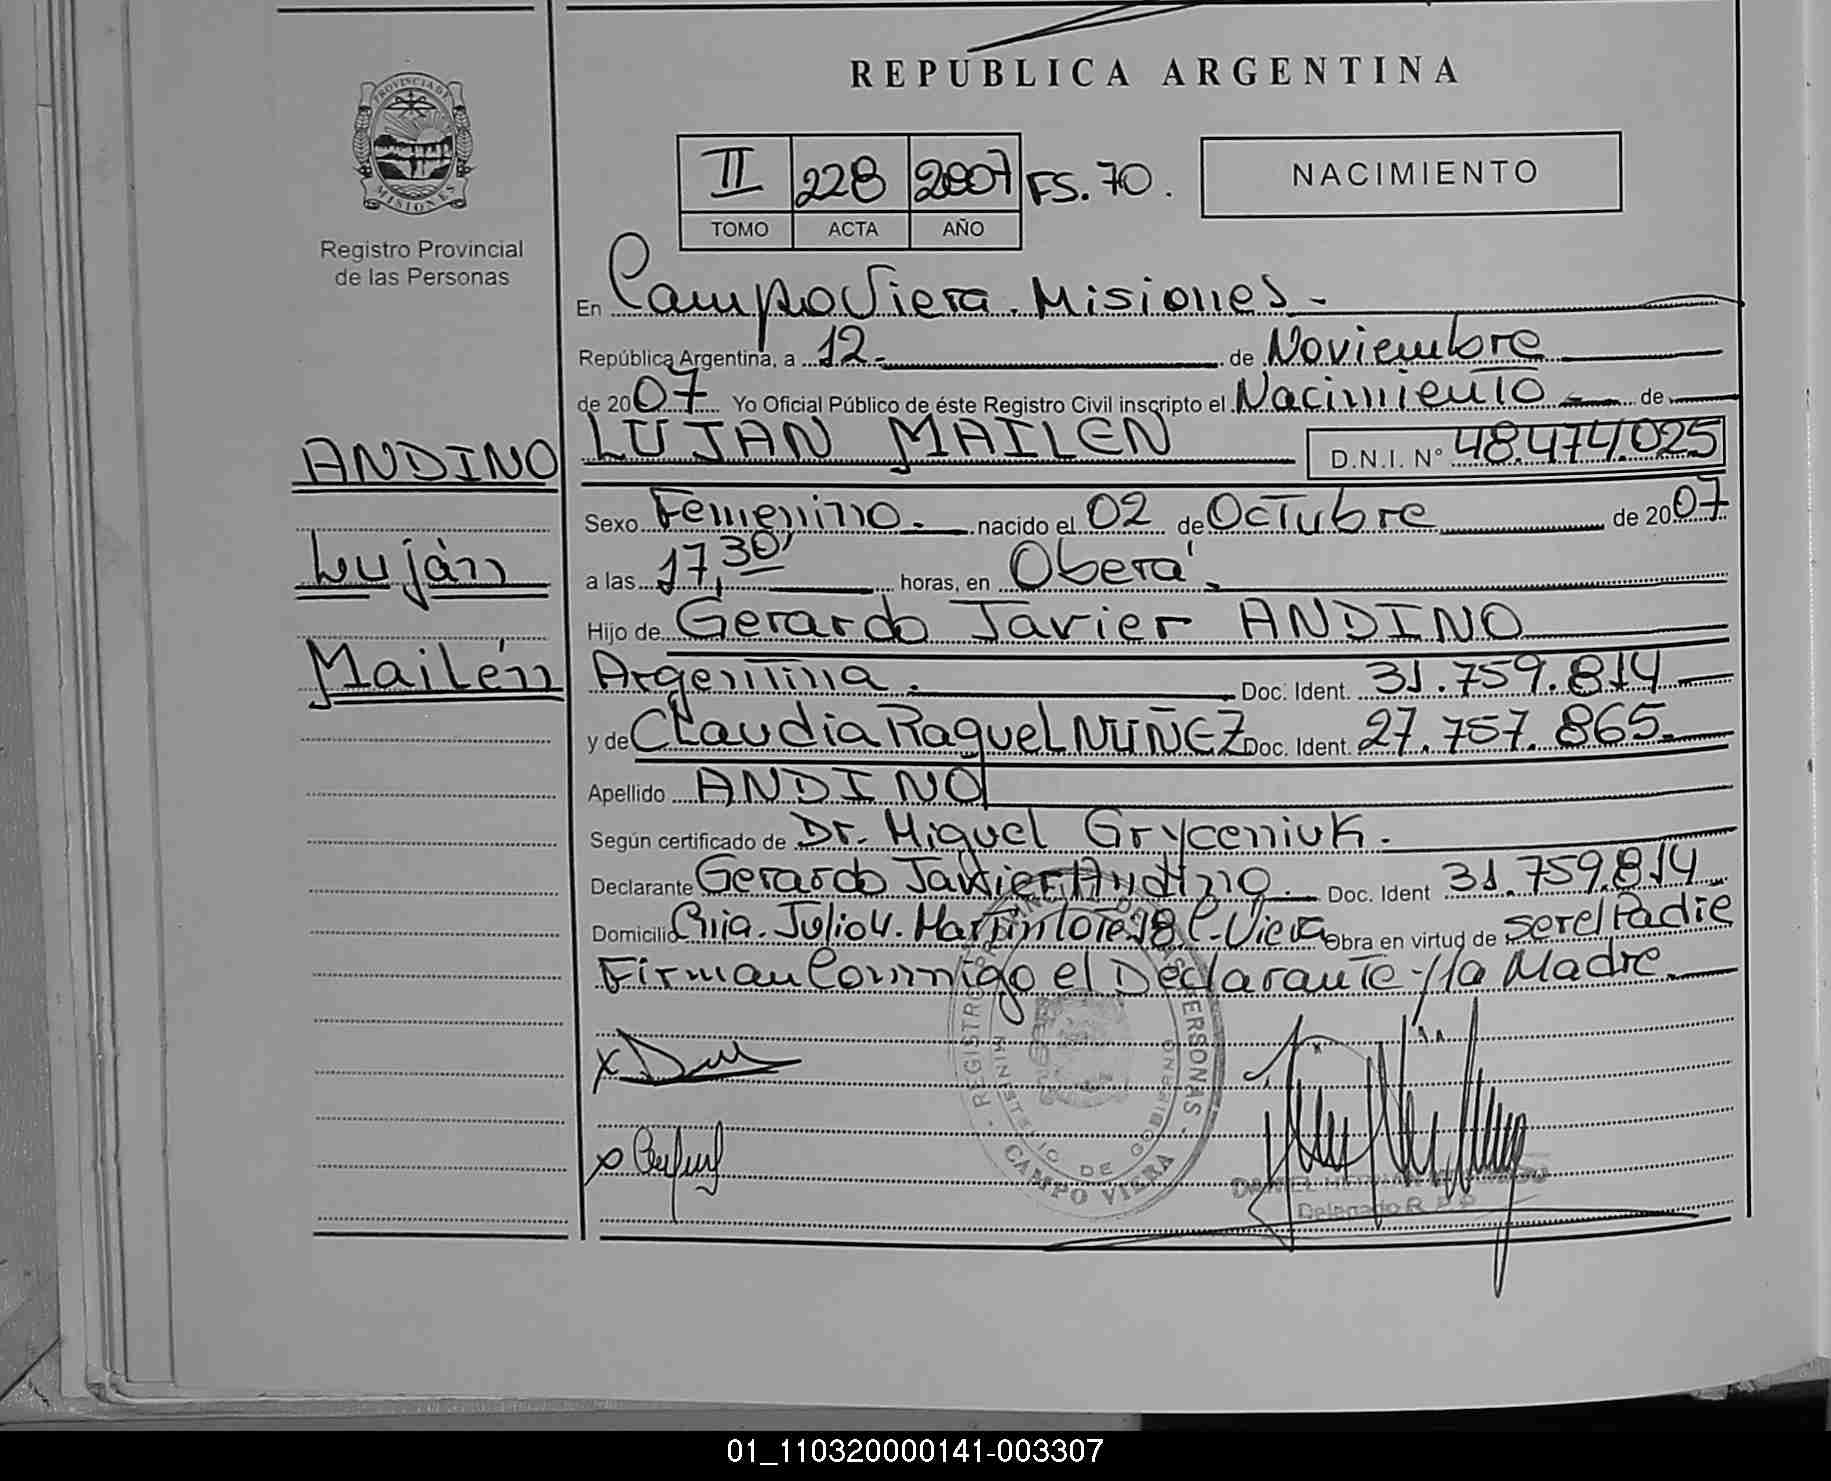 REPUBLICA ARGENTINA
PROVINCIA DE MISIONES
Registro Provincial
de las Personas
II 228 2007 FS. 70.
TOMO ACTA AÑO
NACIMIENTO
En Campo Viera. Misiones.-
República Argentina, a 12.- de Noviembre
de 2007 Yo Oficial Público de éste Registro Civil inscripto el Nacimiento de
ANDINO
Luján
Mailén
LUJAN MAILEN D.N.I. N° 48.474.025
Sexo Femenino.- nacido el 02 de Octubre de 2007
a las 17,30' horas, en Oberá.
Hijo de Gerardo Javier ANDINO
Argentina. Doc. Ident. 31.759.814
y de Claudia Raquel NUÑEZ Doc. Ident. 27.757.865.
Apellido ANDINO
Según certificado de Dr. Miguel Gryceniuk.
Declarante Gerardo Javier Andino.- Doc. Ident 31.759.814
Domicilio Julio U. Martin Lote 18 C. Viera Obra en virtud de ser el Padre
Firman Conmigo el Declarante y la Madre.
REGISTRO PROVINCIAL DE LAS PERSONAS
MINISTERIO DE GOBIERNO
CAMPO VIERA
DANIEL
Delegado R.P.P.
01_110320000141-003307